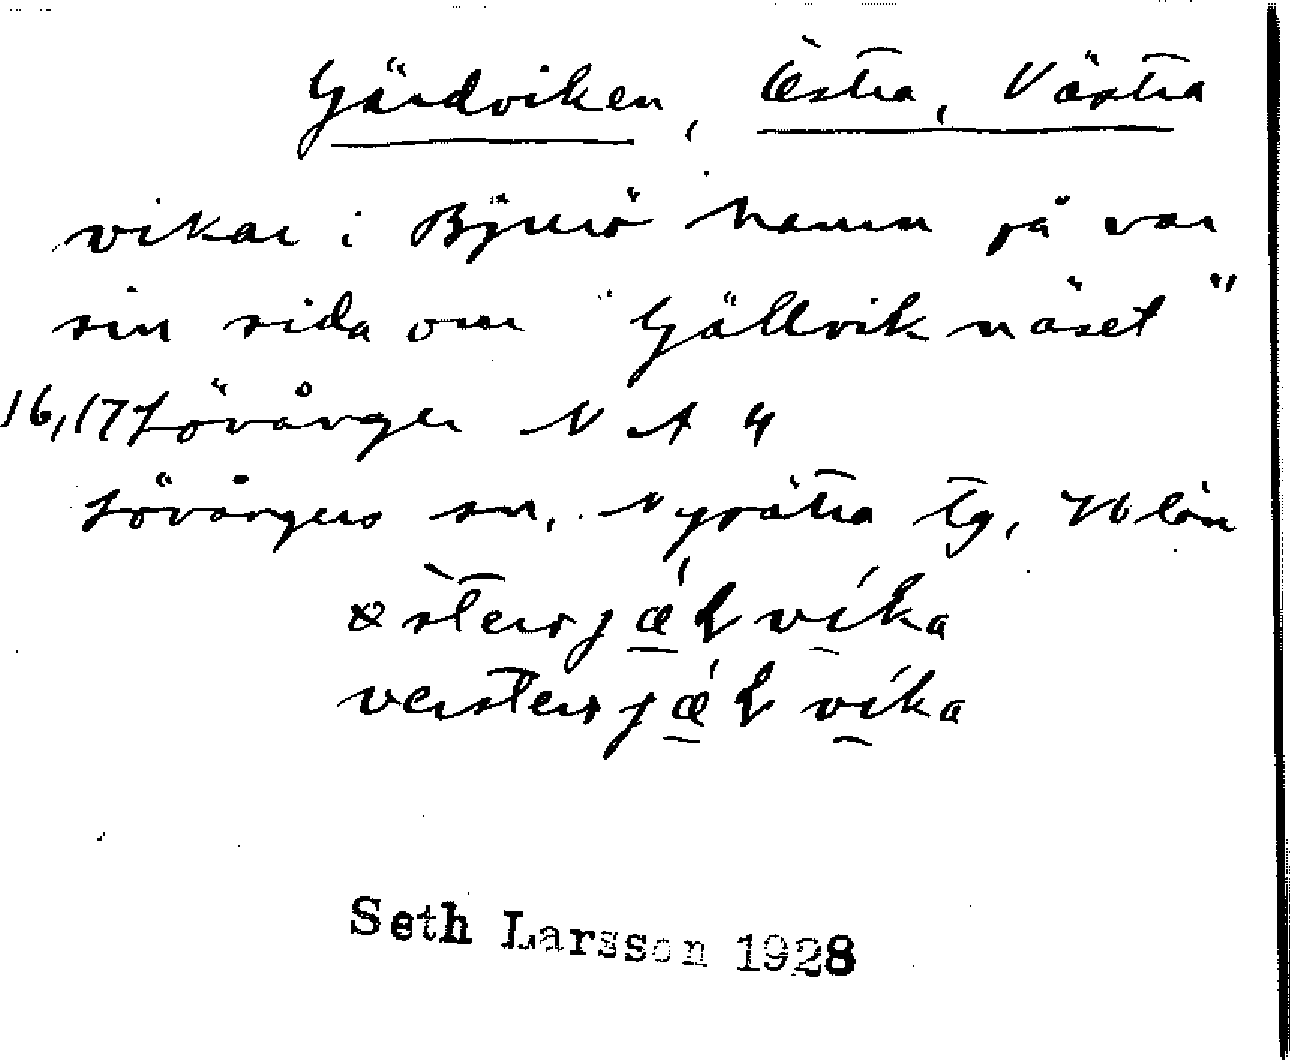 Gärdviken, Östra, Västra
vikar i Bjurö hamn på var
sin sida om "Gällviknäset"
16,17 Lövånger NA 4
Lövångers sn. Nysätra tg, Vb län
österjǽɽvíka
versterjǽɽvíka
Seth Larsson 1928